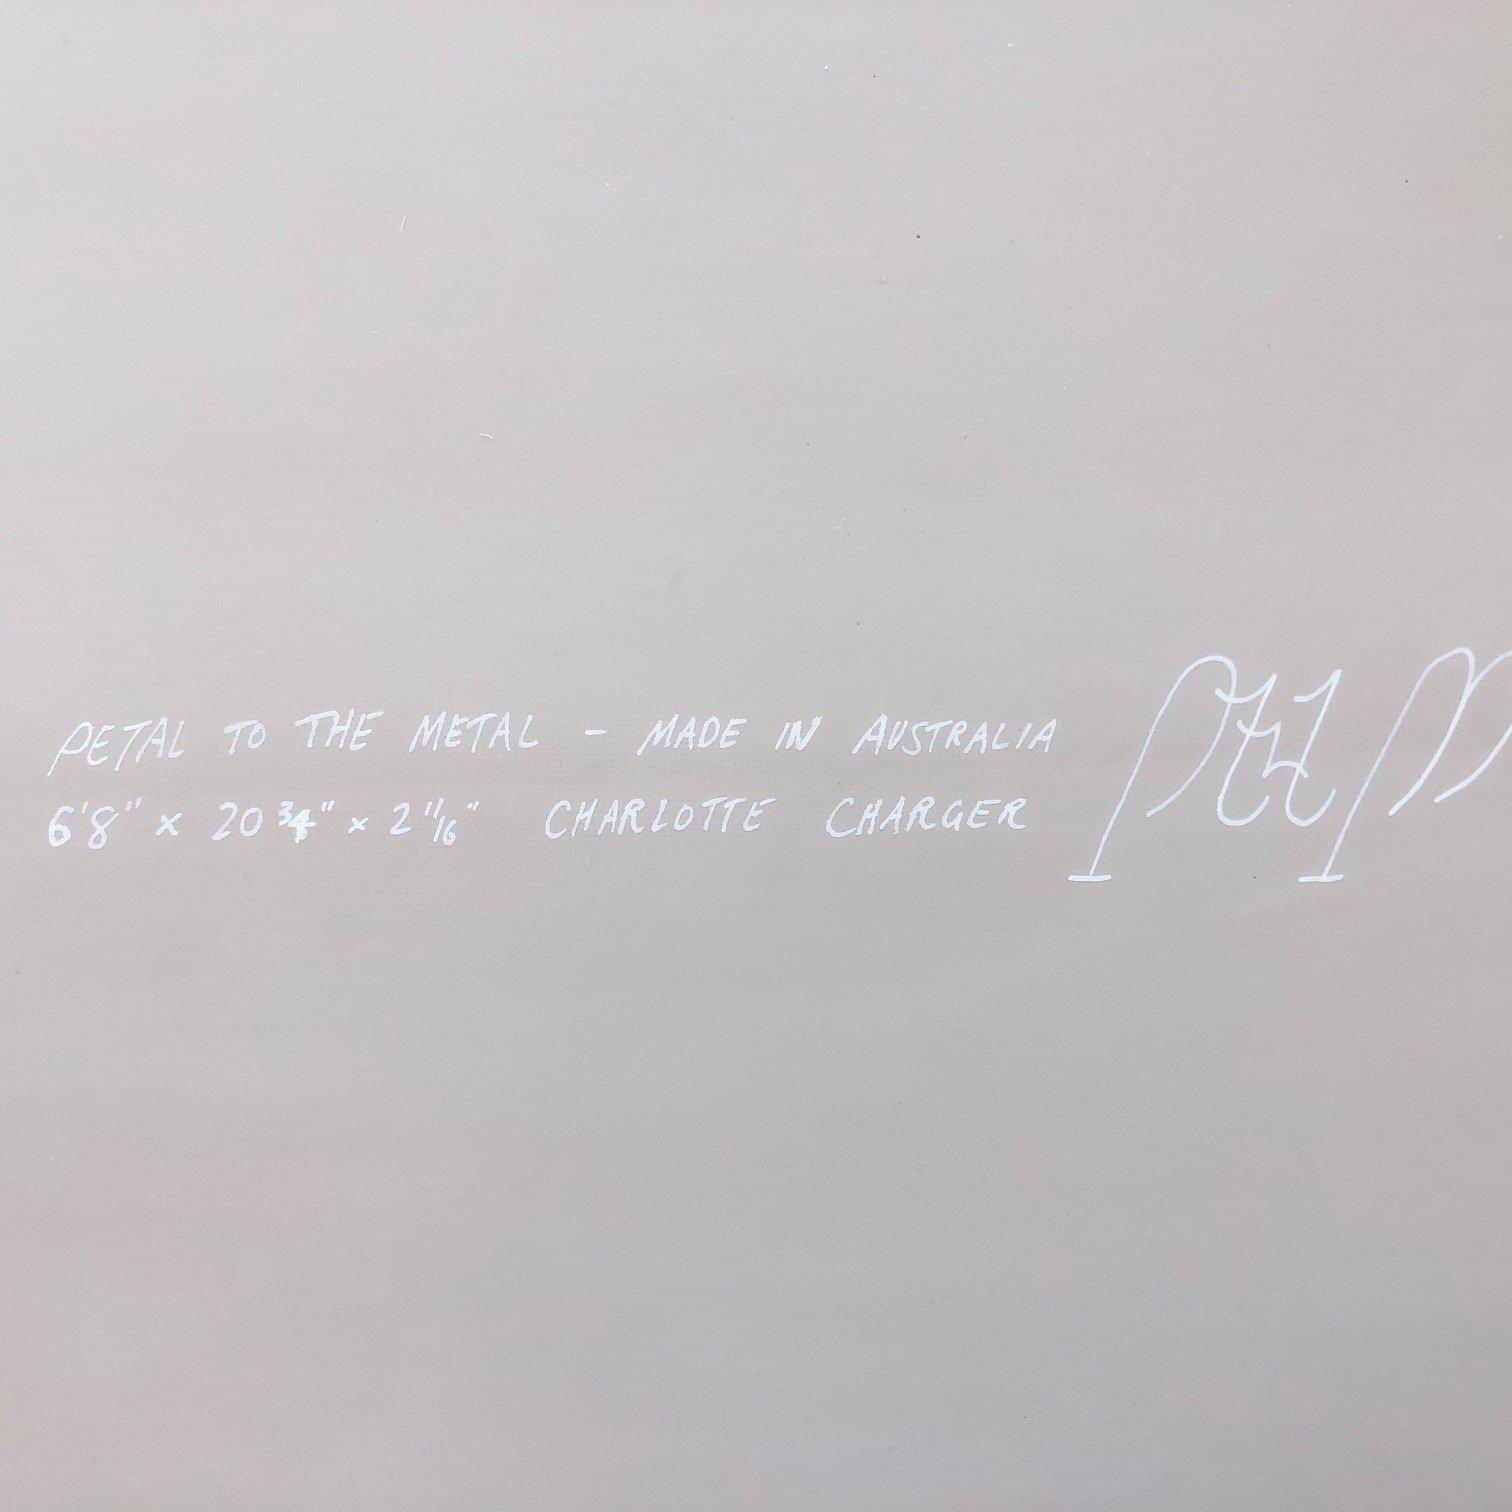 PETAL TO THE METAL - MADE IN AUSTRALIA
6'8" x 20 3/4" x 2 11/16" CHARLOTTE CHARGER